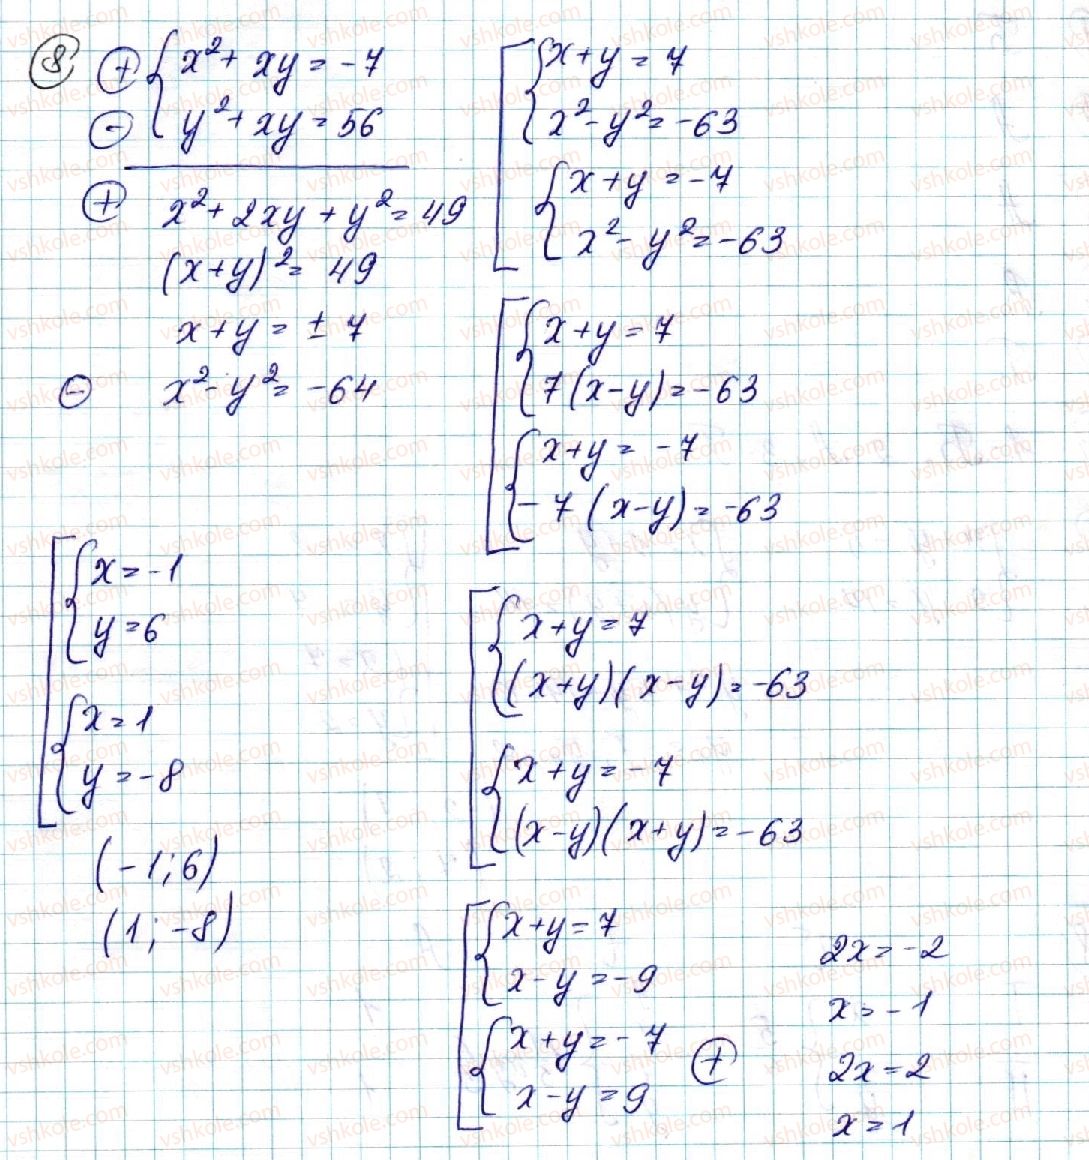 8
⊕ { x² + xy = -7
⊖ { y² + xy = 56
⊕ x² + 2xy + y² = 49
(x+y)² = 49
x + y = ± 7
⊖ x² - y² = -64
[ { x + y = 7
{ x² - y² = -63
{ x + y = -7
{ x² - y² = -63
[ { x + y = 7
{ 7(x-y) = -63
{ x + y = -7
{ -7(x-y) = -63
[ { x + y = 7
{ (x+y)(x-y) = -63
{ x + y = -7
{ (x-y)(x+y) = -63
[ { x + y = 7
{ x - y = -9
{ x + y = -7
{ x - y = 9
⊕
2x = -2
x = -1
2x = 2
x = 1
[ { x = -1
{ y = 6
{ x = 1
{ y = -8
(-1; 6)
(1; -8)
vshkole.com